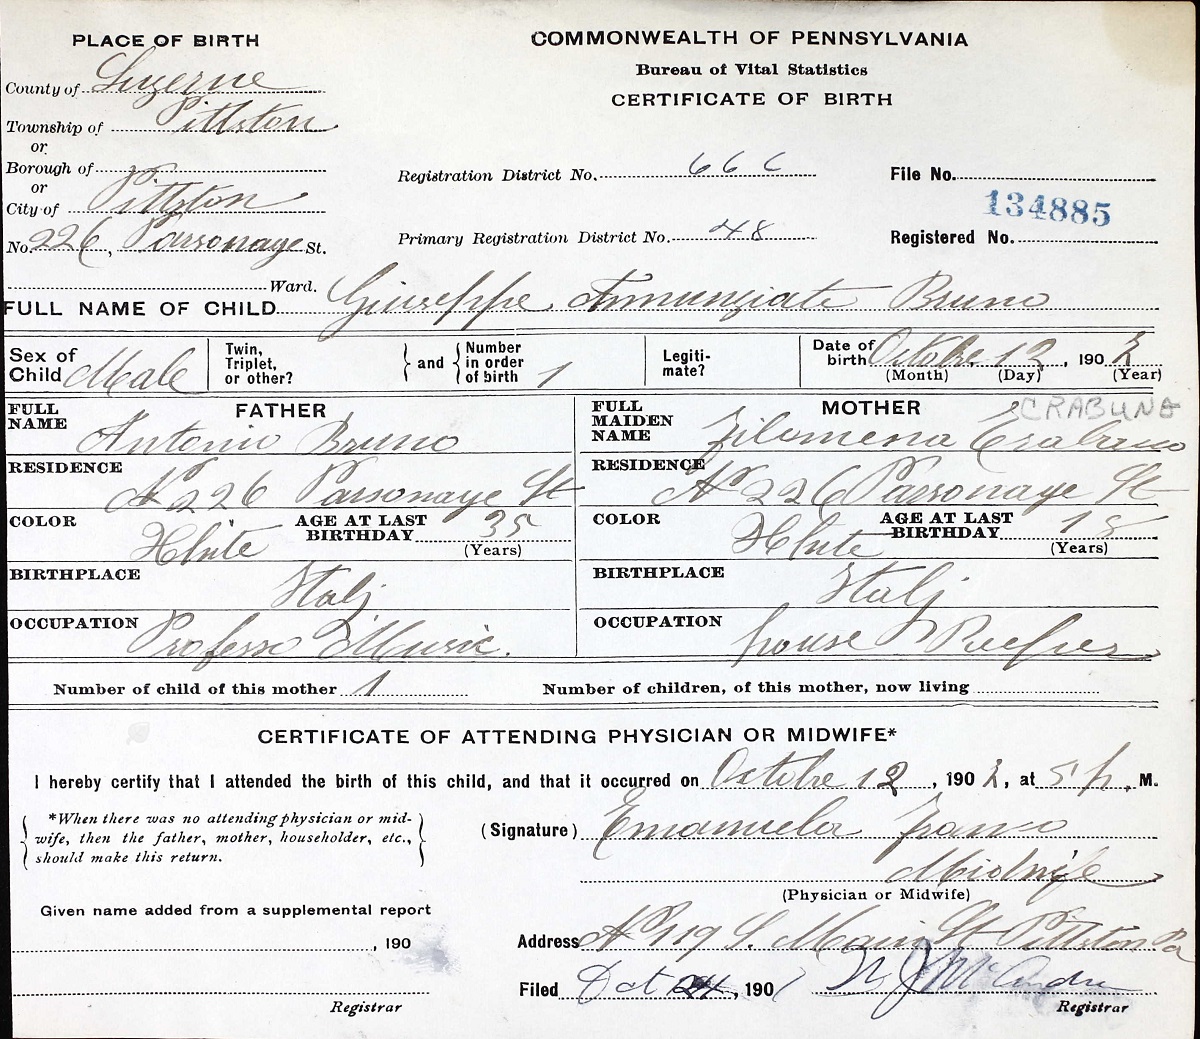 PLACE OF BIRTH
COMMONWEALTH OF PENNSYLVANIA
Bureau of Vital Statistics
CERTIFICATE OF BIRTH
County of Luzerne
Township of Pittston
or
Borough of
or
City of Pittston
No. 226, Parsonage St.
Ward.
Registration District No. 666
Primary Registration District No. 48
File No.
134885
Registered No.
FULL NAME OF CHILD Giuseppe Annunziate Bruno
Sex of Child Male
Twin, Triplet, or other?
and
Number in order of birth 1
Legiti-mate?
Date of birth Octobre 12, 190
(Month) (Day) (Year)
FATHER
FULL NAME Antonio Bruno
RESIDENCE No 226 Parsonage St
COLOR White
AGE AT LAST BIRTHDAY 35
(Years)
BIRTHPLACE Italj
OCCUPATION Professo d'Music.
MOTHER
CRABUNE
FULL MAIDEN NAME Filomena
RESIDENCE No 226 Parsonage St
COLOR White
AGE AT LAST BIRTHDAY 18
(Years)
BIRTHPLACE Italj
OCCUPATION house
Number of child of this mother 1
Number of children, of this mother, now living
CERTIFICATE OF ATTENDING PHYSICIAN OR MIDWIFE*
I hereby certify that I attended the birth of this child, and that it occurred on Octobre 12, 190 , at 5 p. M.
*When there was no attending physician or mid-
wife, then the father, mother, householder, etc.,
should make this return.
(Signature) Emanuela
Midwife
(Physician or Midwife)
Given name added from a supplemental report
, 190
Registrar
Address No 119 S. Main St Pittston Pa
Filed Oct 24, 190
Registrar